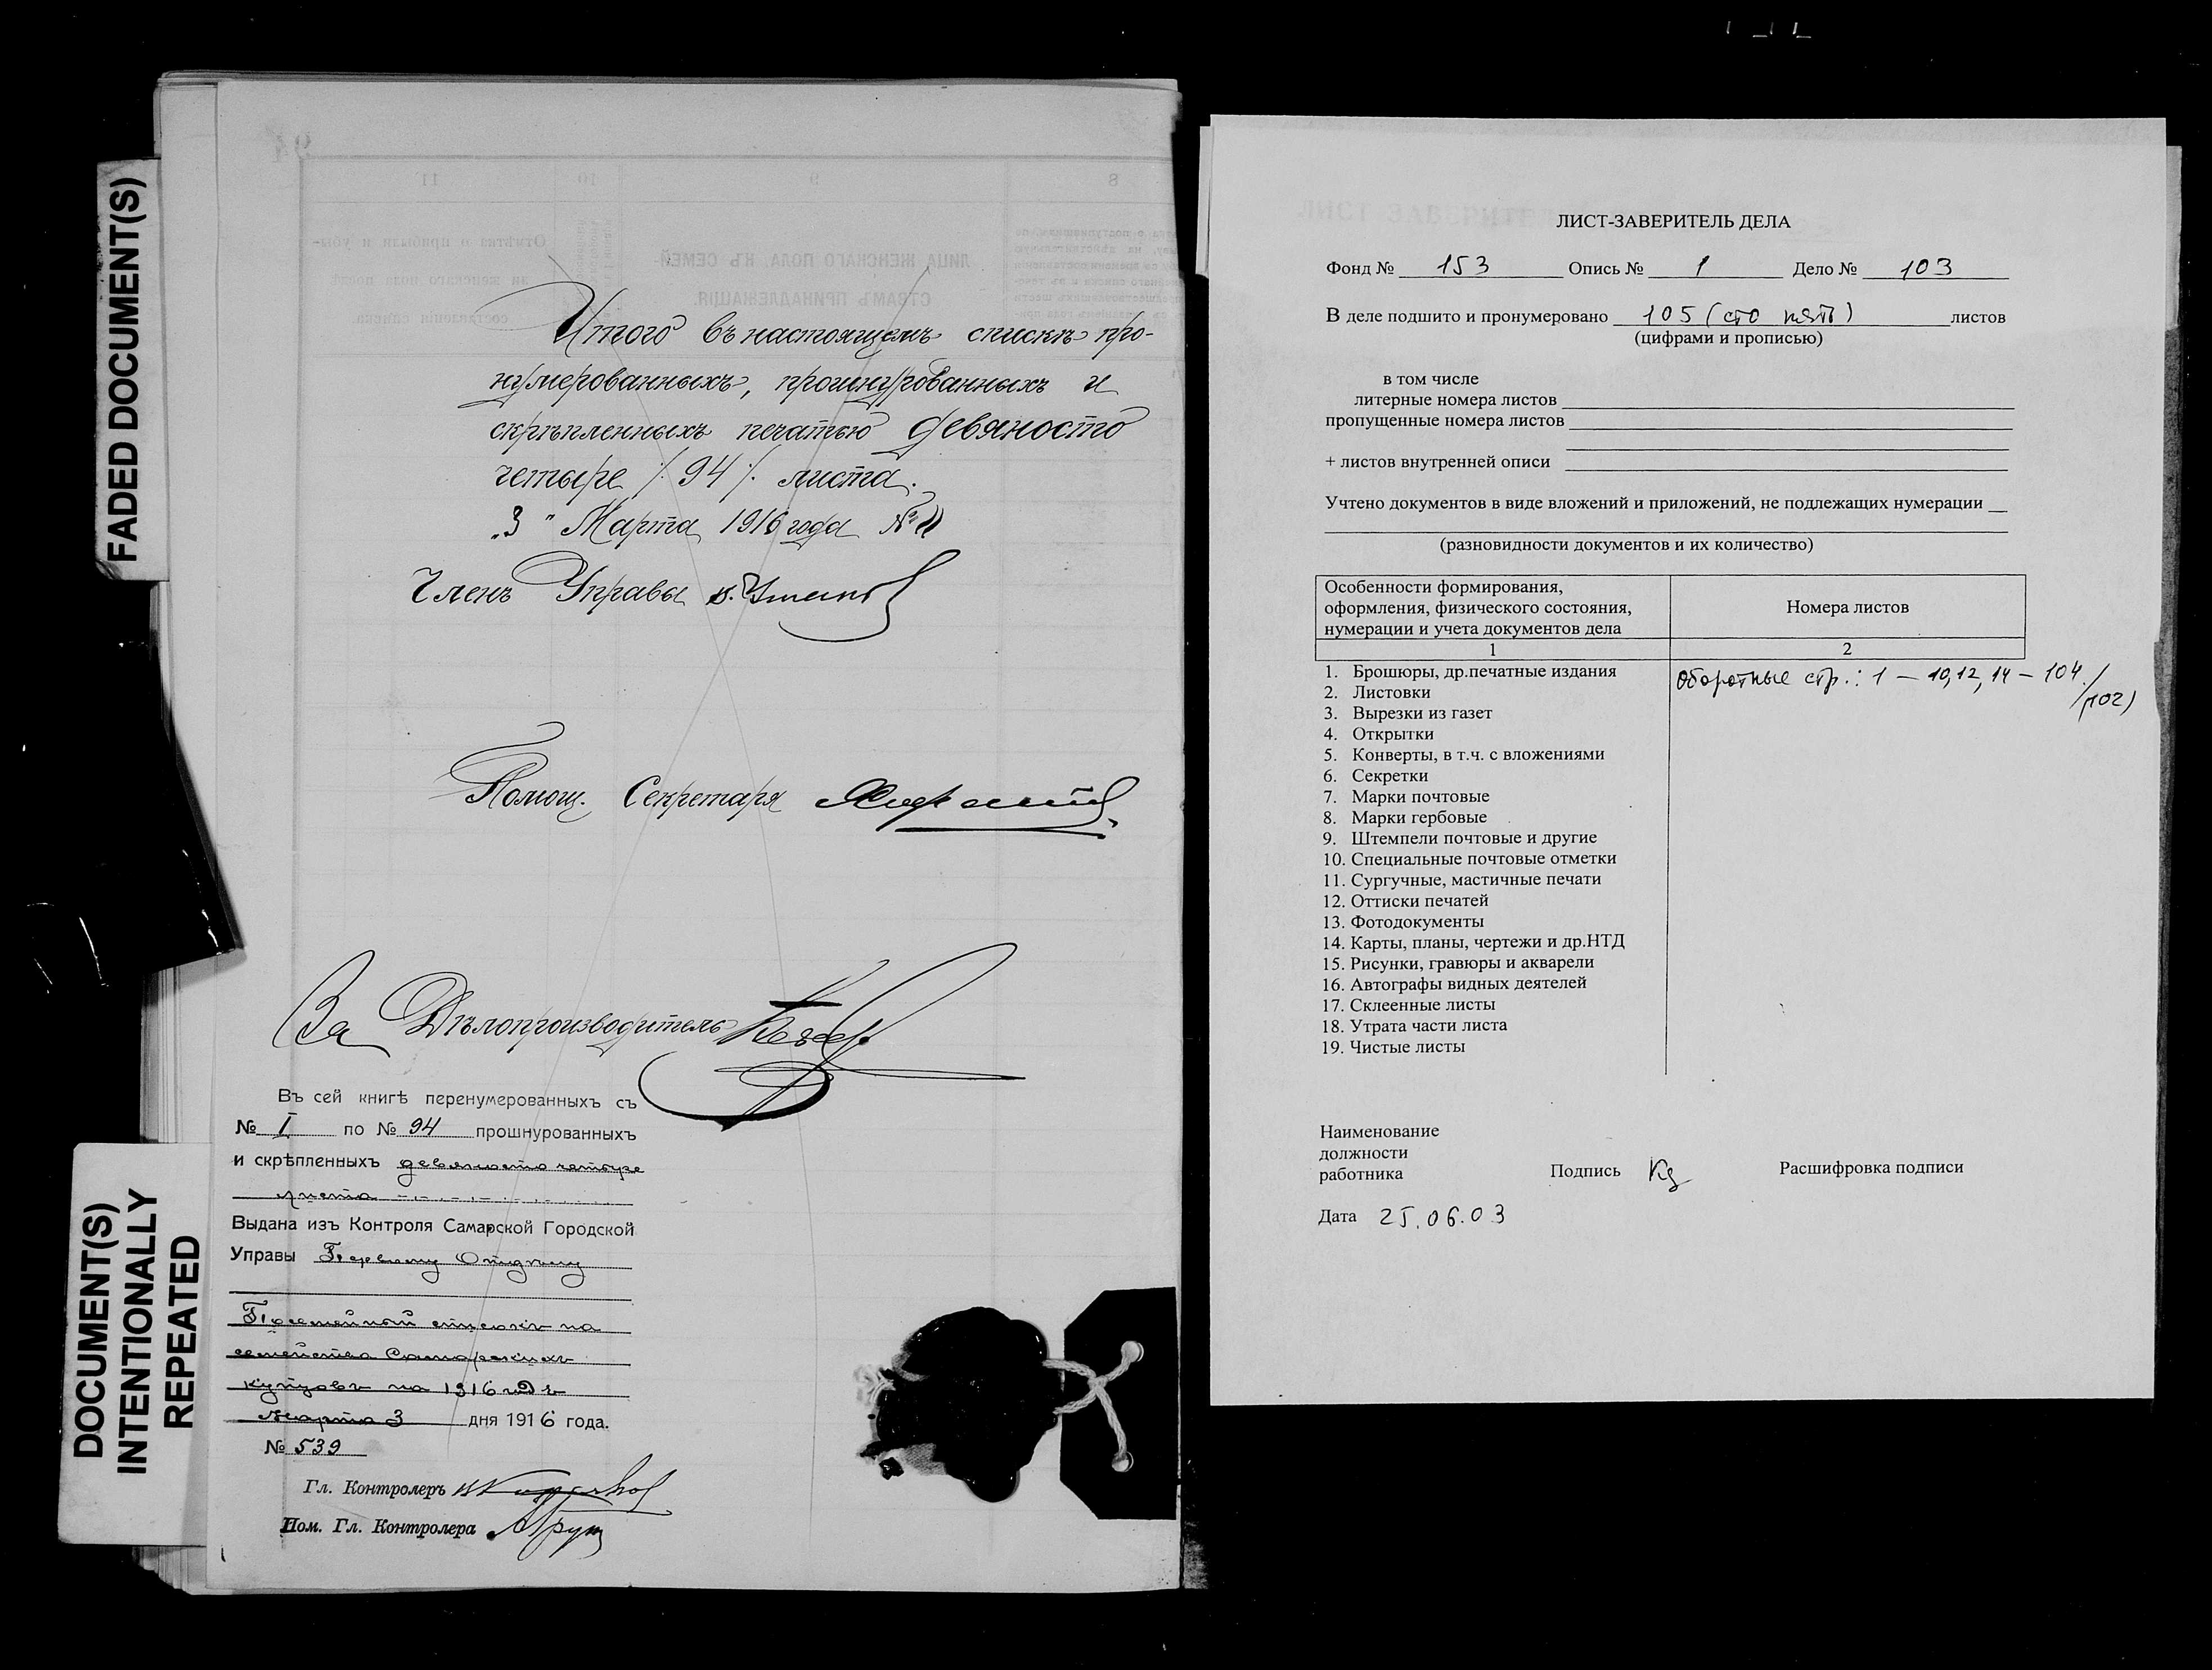 FADED DOCUMENT(S)
DOCUMENT(S)
INTENTIONALLY
REPEATED
Итого въ настоящемъ спискѣ про-
нумерованныхъ, прошнурованныхъ и
скрѣпленныхъ печатью девяносто
четыре /94/. листа.
„3" Марта 1916 года №
Членъ Управы
Помощ. Секретаря
За Дѣлопроизводитель
Въ сей книгѣ перенумерованныхъ съ
№ I по № 94 прошнурованныхъ
и скрѣпленныхъ девяносто четыре
листа
Выдана изъ Контроля Самарской Городской
Управы Первому Отдѣлу
Посемейный списокъ на
семейства Самарскихъ
купцовъ на 1916 годъ
Марта 3 дня 1916 года.
№ 539
Гл. Контролеръ
Пом. Гл. Контролера
ЛИСТ-ЗАВЕРИТЕЛЬ ДЕЛА
Фонд № 153 Опись № 1 Дело № 103
В деле подшито и пронумеровано 105 (сто пять) листов
(цифрами и прописью)
в том числе
литерные номера листов
пропущенные номера листов
+ листов внутренней описи
Учтено документов в виде вложений и приложений, не подлежащих нумерации
(разновидности документов и их количество)
Особенности формирования,
оформления, физического состояния,
нумерации и учета документов дела
Номера листов
1 2
1. Брошюры, др.печатные издания
2. Листовки
3. Вырезки из газет
4. Открытки
5. Конверты, в т.ч. с вложениями
6. Секретки
7. Марки почтовые
8. Марки гербовые
9. Штемпели почтовые и другие
10. Специальные почтовые отметки
11. Сургучные, мастичные печати
12. Оттиски печатей
13. Фотодокументы
14. Карты, планы, чертежи и др.НТД
15. Рисунки, гравюры и акварели
16. Автографы видных деятелей
17. Склеенные листы
18. Утрата части листа
19. Чистые листы
Оборотные стр.: 1 – 10,12,14 – 104
/102)
Наименование
должности
работника Подпись Расшифровка подписи
Дата 25.06.03